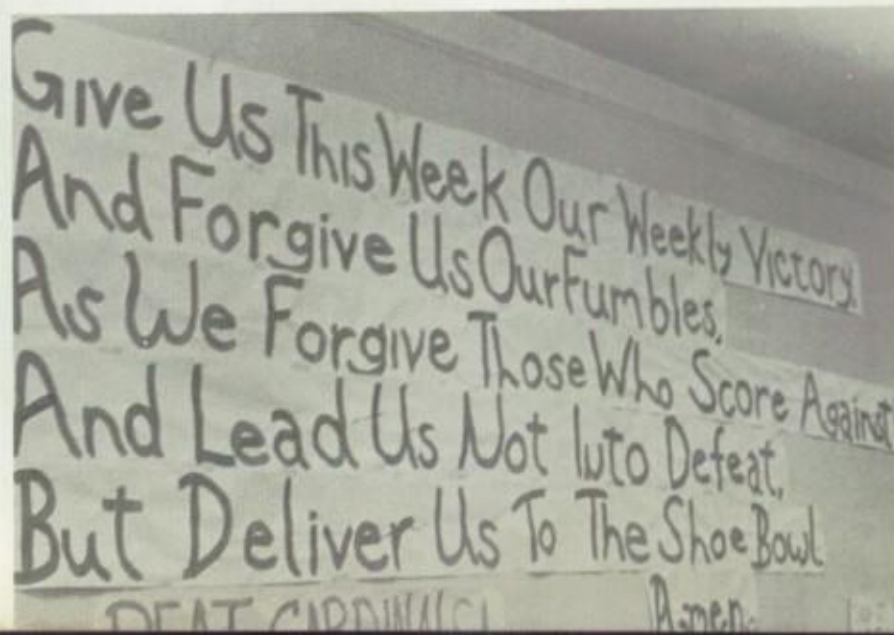 Give Us This Week Our Weekly Victory.
And Forgive Us Our Fumbles,
As We Forgive Those Who Score Against
And Lead Us Not Into Defeat,
But Deliver Us To The Shoe Bowl
Amen.